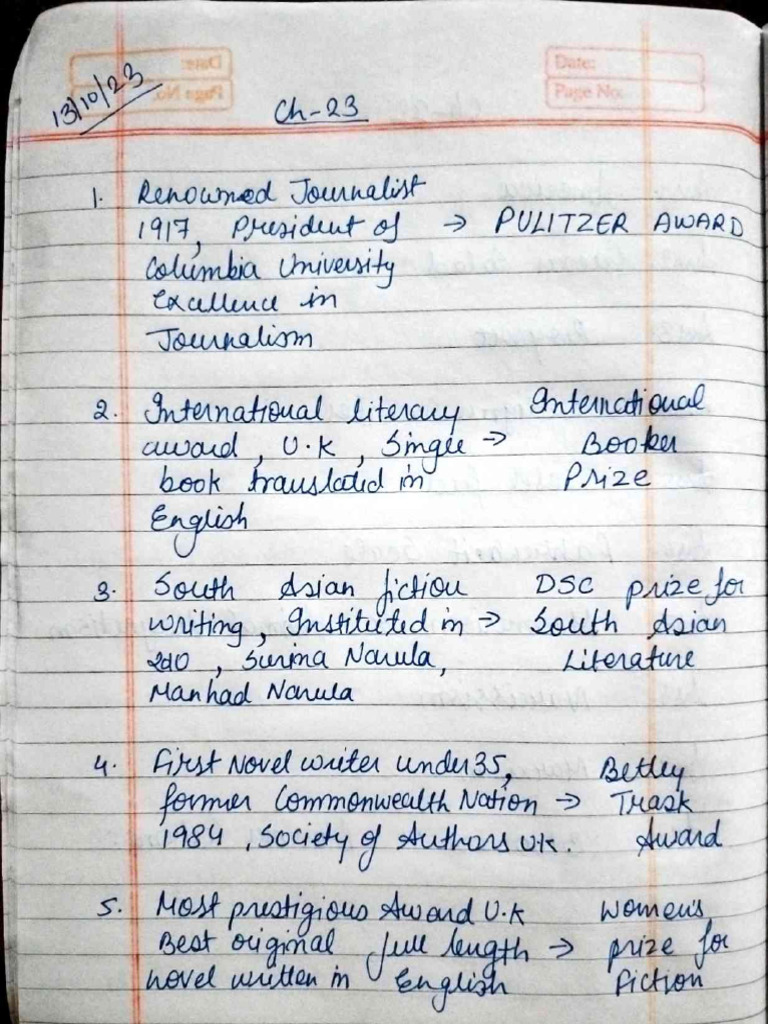 Date:
Page No:
13/10/23
Ch-23
1. Renowned Journalist
1917, President of → PULITZER AWARD
Columbia University
Excellence in
Journalism
2. International literary International
award, U.K, Single → Booker
book translated in Prize
English
3. South Asian fiction DSC prize for
writing, Instituted in → South Asian
2010, Surina Narula, Literature
Manhad Narula
4. First Novel writer under 35, Betley
former Commonwealth Nation → Trask
1984, Society of Authors UK. Award
5. Most prestigious Award U.K Women's
Best original full length → prize for
novel written in English Fiction